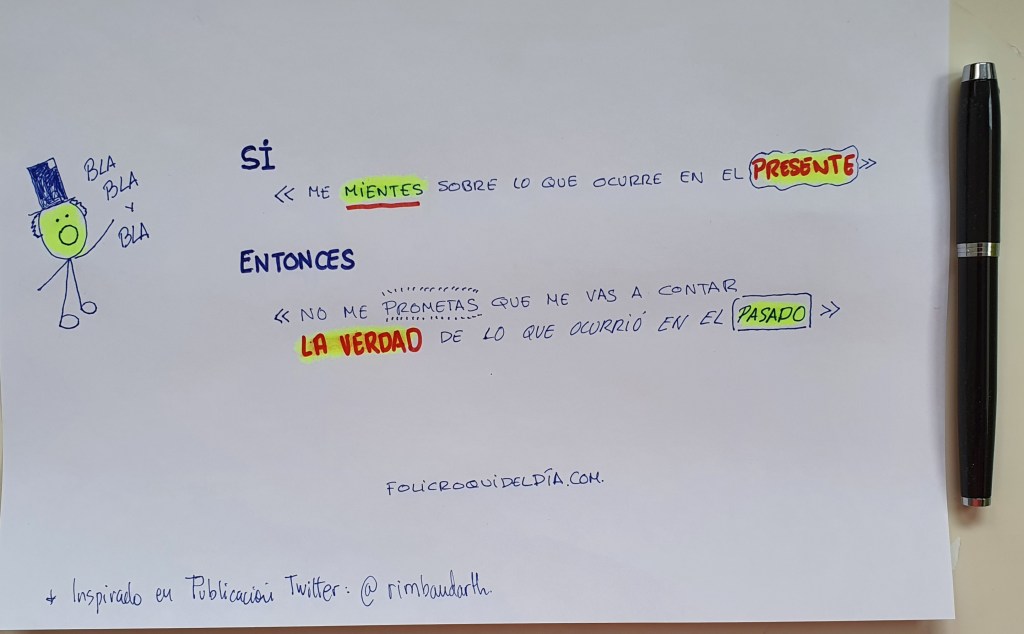 BLA
BLA
Y
BLA
SÍ
« ME MIENTES SOBRE LO QUE OCURRE EN EL PRESENTE »
ENTONCES
« NO ME PROMETAS QUE ME VAS A CONTAR
LA VERDAD DE LO QUE OCURRIÓ EN EL PASADO »
FOLICROQUIDELDÍA.COM.
+ Inspirado en Publicación Twitter: @rimbaudarth.